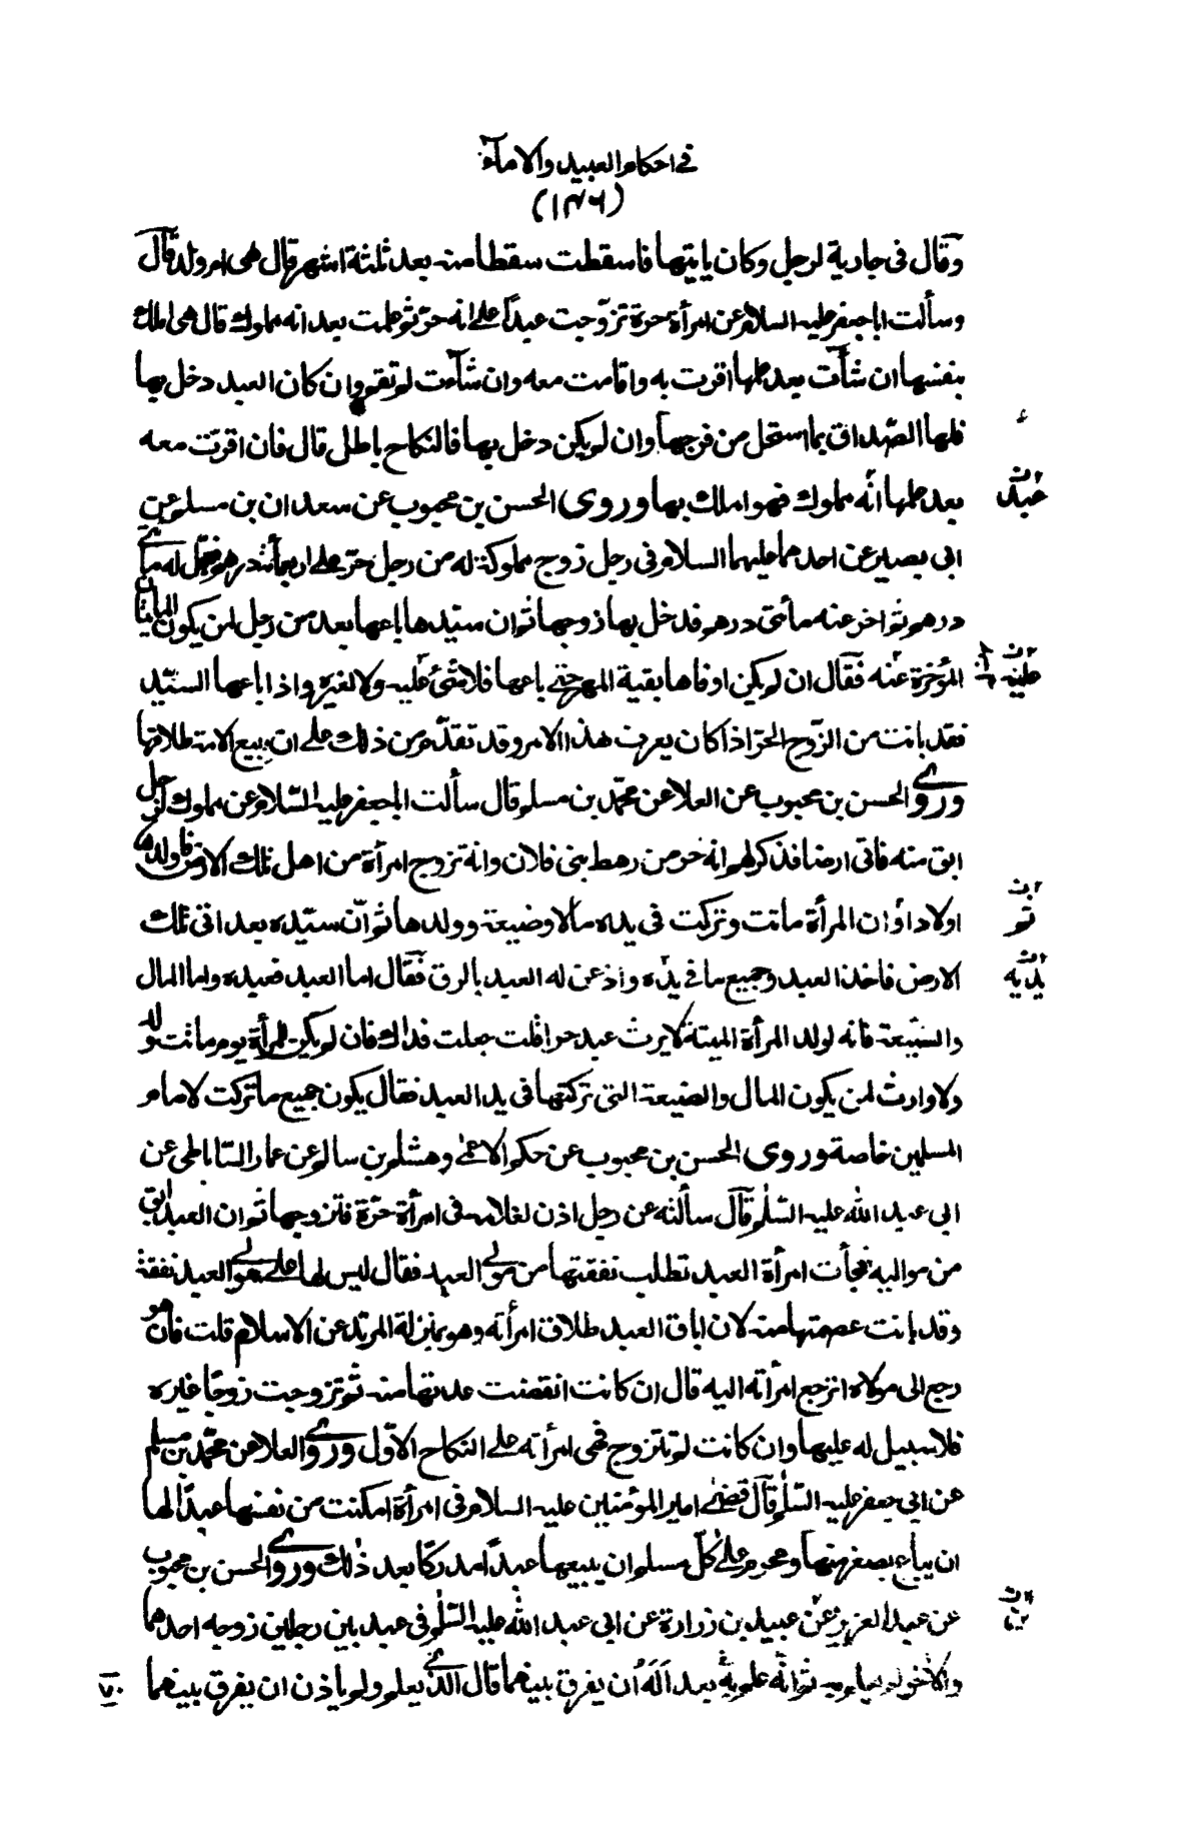 في احكام العبيد والاماء
(١٤٦)
وقال في جارية لرجل وكان ياتيها فاسقطت سقطا منه بعد ثلثة اشهر قال هي ام ولد قال
وسألت ابا جعفر عليه السلام عن امرأة حرة تزوجت عبدًا على انه حرّ ثم علمت بعد انه مملوك قال هي املك
بنفسها ان شاءت بعد علمها اقرت به واقامت معه وان شاءت لم تقم وان كان العبد دخل بها
فلها الصّداق بما استحل من فرجها وان لم يكن دخل بها فالنكاح باطل قال فان اقرّت معه
بعد علمها انّه مملوك فهو املك بها وروى الحسن بن محبوب عن سعدان بن مسلم عن
ابي بصير عن احدهما عليهما السلام في رجل زوج مملوكة له من رجل حرّ على اربعمائة درهم فعجّل له مأتي
درهم ثم اخر عنه مأتي درهم فدخل بها زوجها ثم ان سيّدها باعها بعد من رجل لمن يكون المايتان
المؤخرة عنه فقال ان لم يكن اوفاها بقية المهر حتى باعها فلا شئ عليه ولا لغيره واذا باعها السيّد
فقد بانت من الزّوج الحرّ اذا كان يعرف هذا الامر وقد تقدّم من ذلك على ان بيع الامة طلاقها
وروى الحسن بن محبوب عن العلا عن محمّد بن مسلم قال سألت ابا جعفر عليه السّلام عن مملوك لرجل
ابق منه فاتى ارضا فذكر لهم انه حر من رهط بني فلان وانه تزوج امرأة من اهل تلك الارض فاولدها
اولادا وان المرأة ماتت وتركت في يده مالا وضيعة وولدها ثم انّ سيّده بعد اتى تلك
الارض فاخذ العبد وجميع ما في يده واذعن له العبد بالرق فقال اما العبد فعبده واما المال
والضّيعة فانه لولد المرأة الميتة لا يرث عبد حرا قلت جعلت فداك فان لم يكن للمرأة يوم ماتت ولد
ولا وارث لمن يكون المال والضيعة التي تركتها في يد العبد فقال يكون جميع ما تركت لامام
المسلمين خاصة وروى الحسن بن محبوب عن حكم الاعمى وهشام بن سالم عن عمار السّاباطي عن
ابي عبد الله عليه السّلم قال سألته عن رجل اذن لغلامه في امرأة حرّة فتزوجها ثم ان العبد ابق
من مواليه فجأت امرأة العبد تطلب نفقتها من مولى العبد فقال ليس لها على مولى العبد نفقة
وقد بانت عصمتها منه لان اباق العبد طلاق امرأته وهو بمنزلة المرتد عن الاسلام قلت فان هو
رجع الى مولاه اترجع امرأته اليه قال ان كانت انقضت عدتها منه ثم تزوجت زوجًا غيره
فلا سبيل له عليها وان كانت لم تتزوج فهي امرأته على النكاح الاوّل وروى العلا عن محمّد بن مسلم
عن ابي جعفر عليه السّلم قال قضى امير المؤمنين عليه السلام في امرأة امكنت من نفسها عبدًا لها
ان يباع بصغر منها ومحرم على كلّ مسلم ان يبيعها عبدًا مدركًا بعد ذلك وروى الحسن بن محبوب
عن عبد العزيز عن عبيد بن زرارة عن ابي عبد الله عليه السّلم في عبد بين رجلين زوجه احدهما
والآخر لم يعلم به ثم انّه علم به بعد اَلَهُ ان يفرق بينهما قال للذى لم يعلم ولم ياذن ان يفرق بينهما